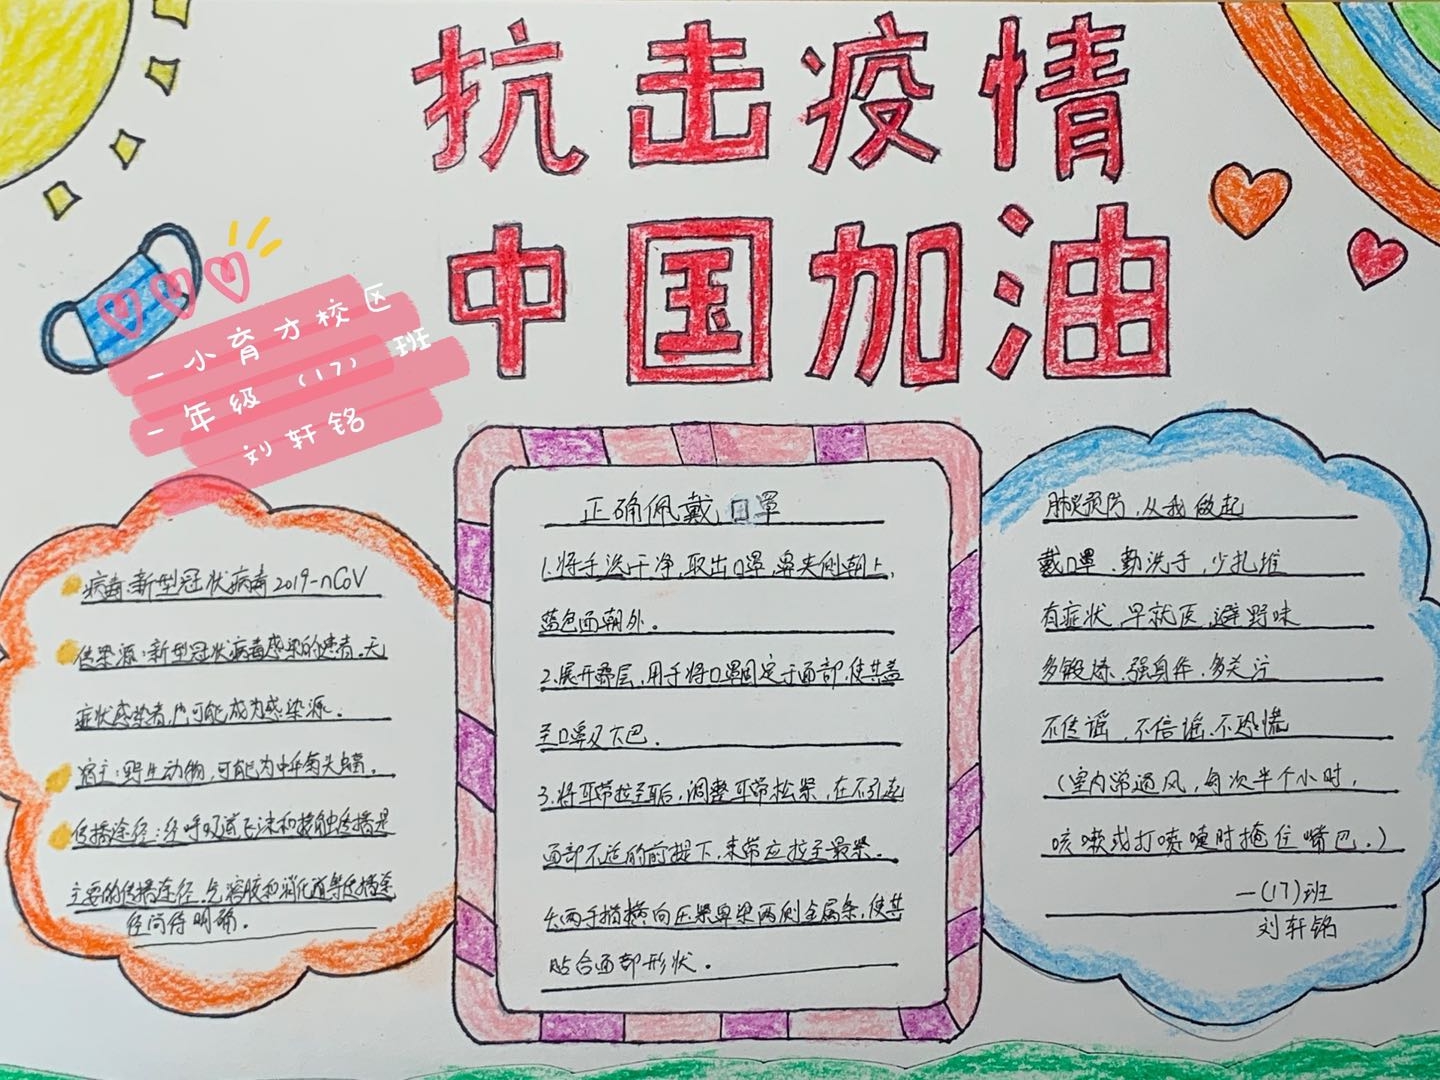 抗击疫情
中国加油
一小育才校区
一年级（17）班
刘轩铭
病毒:新型冠状病毒2019-nCoV
传染源:新型冠状病毒感染的患者。无
症状感染者,也可能成为感染源。
宿主:野生动物,可能为中华菊头蝠。
传播途径:经呼吸道飞沫和接触传播是
主要的传播途径。气溶胶和消化道等传播途
径尚待明确。
正确佩戴口罩
1.将手洗干净,取出口罩,鼻夹侧朝上,
蓝色面朝外。
2.展开叠层,用手将口罩固定于面部,使其盖
至口鼻及下巴.
3.将耳带拉至耳后,调整耳带松紧,在不引起
面部不适的前提下,束带应拉至最紧。
4.两手指横向压紧鼻梁两侧金属条,使其
贴合面部形状。
肺炎预防,从我做起
戴口罩.勤洗手,少扎堆
有症状,早就医,避野味
多锻炼,强身体,多关注
不传谣,不信谣,不恐慌
(室内常通风,每次半个小时,
咳嗽或打喷嚏时掩住嘴巴。)
一(17)班
刘轩铭